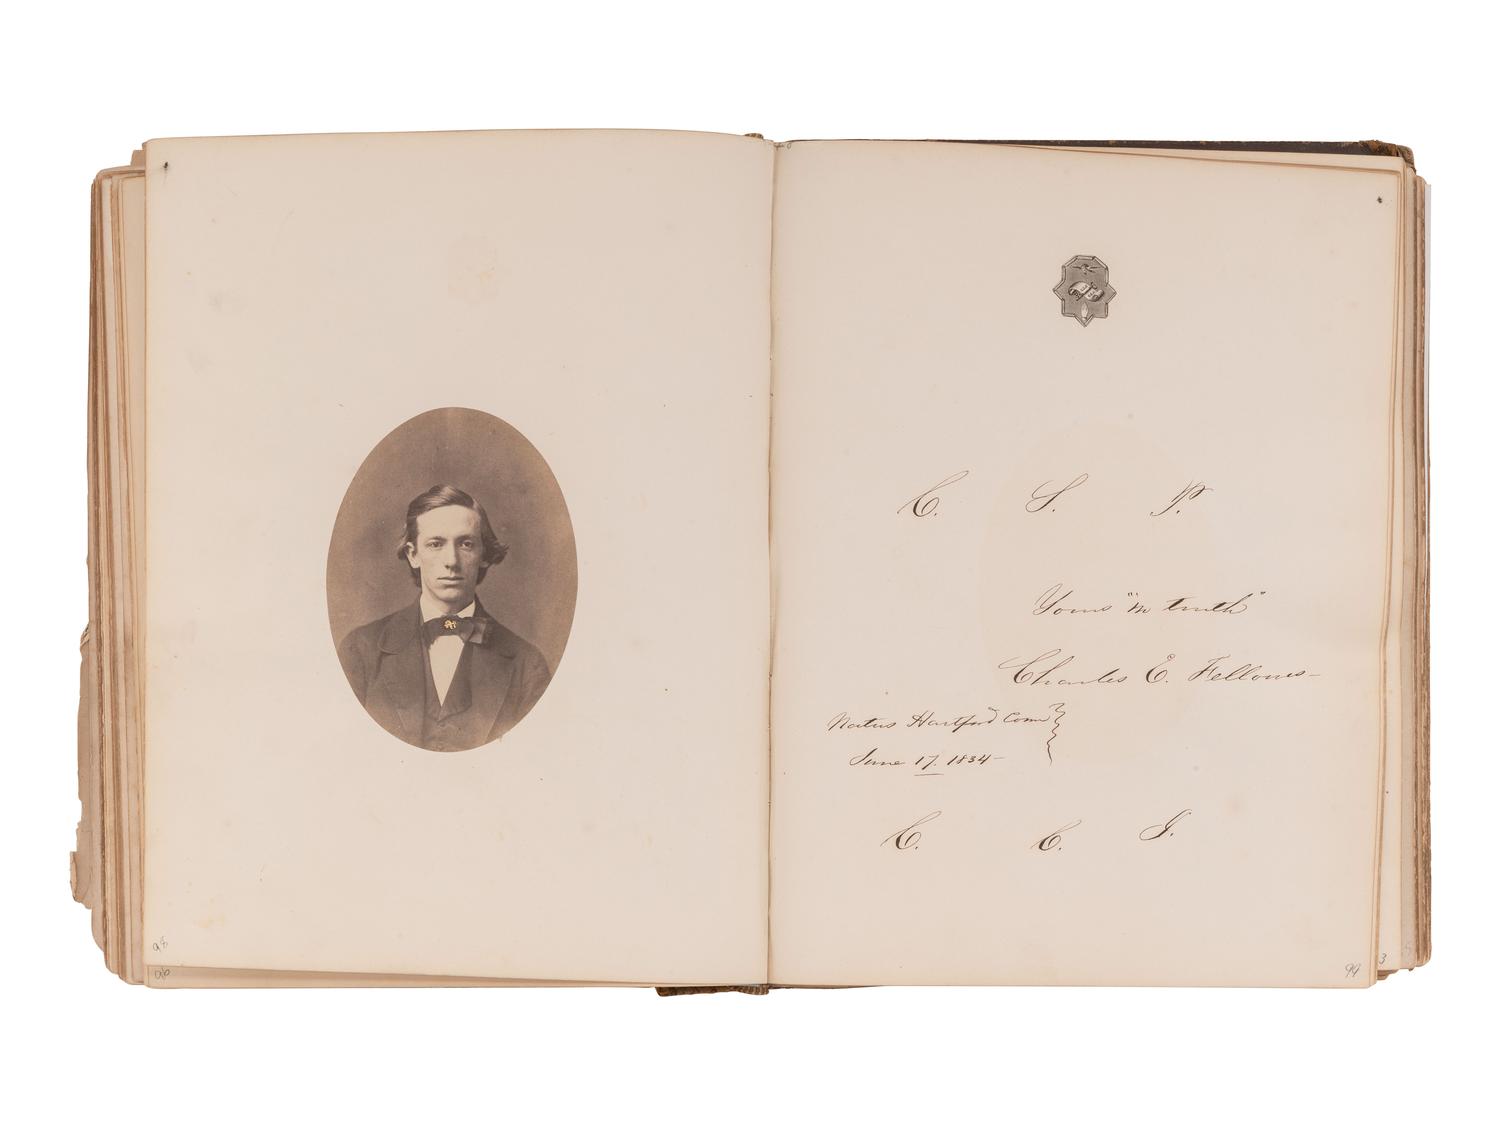 C. S. P.
Yours "in truth"
Charles E. Fellows-
Natus Hartford Conn
June 17. 1834-
C. C. I.
98
96
99
3